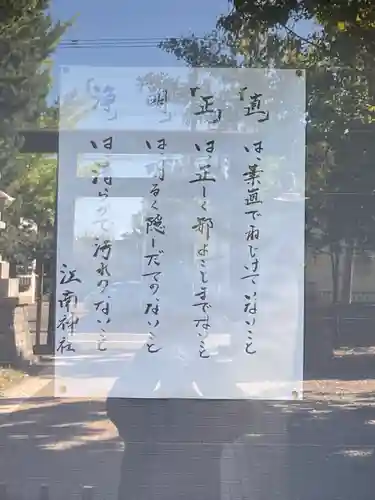 「直」は、素直でねじけていないこと
「正」は正しく邪よこしまでないこと
「明」は明るく隠しだてのないこと
「浄」は清らかで汚れのないこと
江南神社